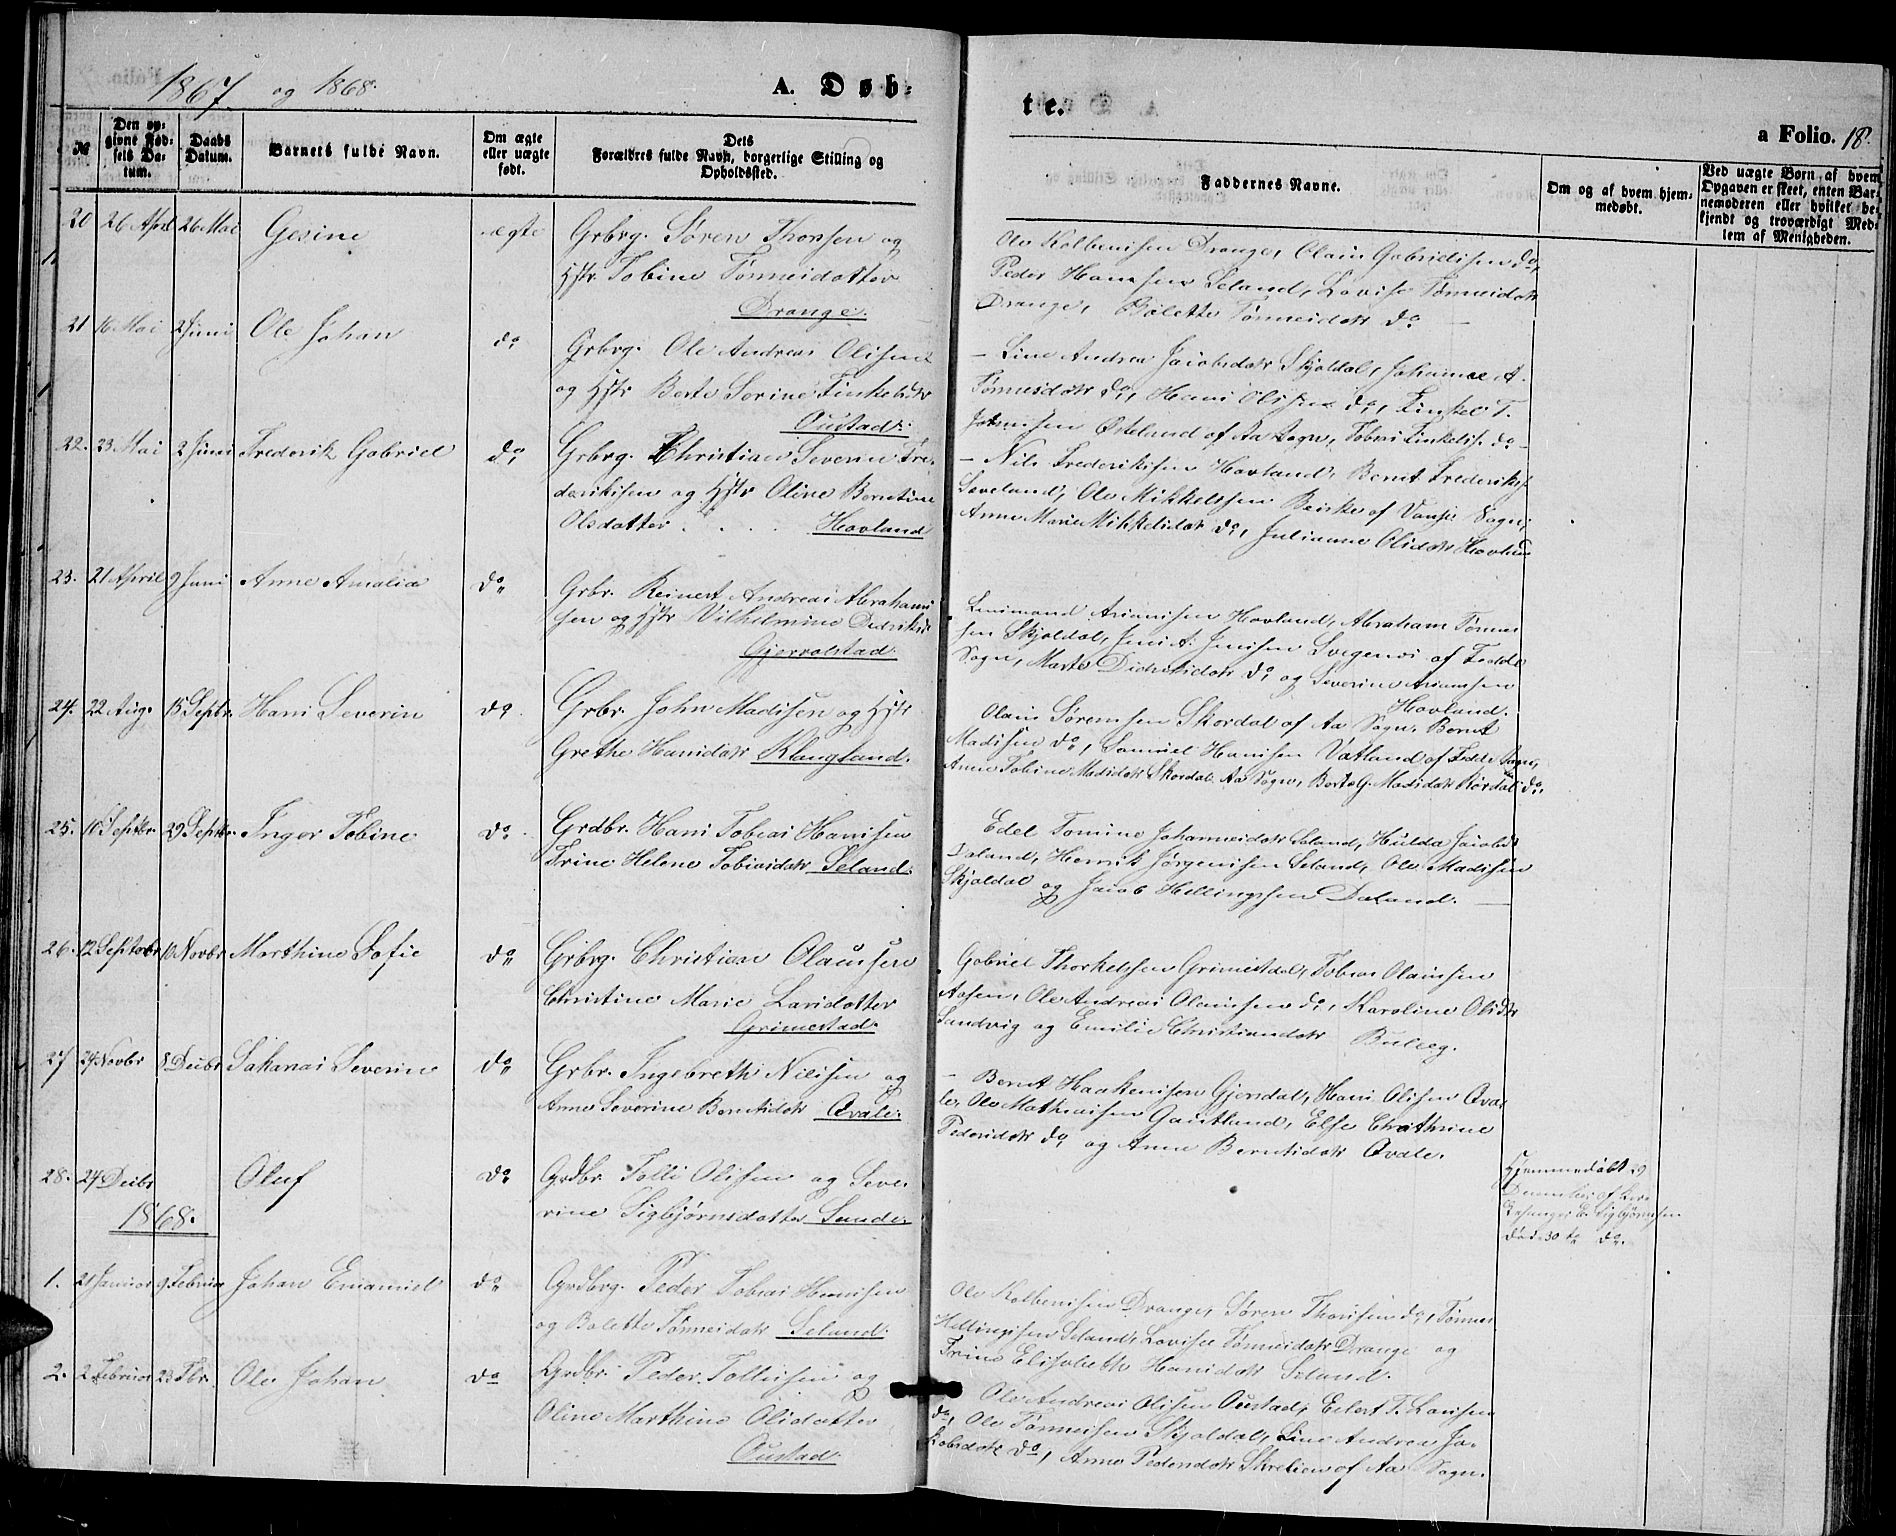 1867 og 1868.
A. Døb-
te.
a Folio. 18.
№
Den op-
givne Fød-
sels Da-
tum.
Daabs
Datum.
Barnets fulde Navn.
Om ægte
eller uægte
født.
Dets
Forældres fulde Navn, borgerlige Stilling og
Opholdssted.
Faddernes Navne.
Om og af hvem hjem-
medøbt.
Ved uægte Børn, af hvem
Opgaven er skeet, enten Bar-
nemoderen eller hvilket be-
kjendt og troværdigt Med-
lem af Menigheden.
20 26 April 26 Mai Gesine ægte Grbrg. Søren Thorsen og
Hstr Tobine Tønnesdatter
Drange.
Ole Kolbensen Drange, Olaus Gabrielsen do,
Peder Hansen Seland, Lovise Tønnesdatr
Drange, Bolette Tønnesdatr do
21 16 Mai 2 Juni Ole Johan do Grbrg. Ole Andreas Olsen
og Hstr Berte Serine Tinkelsdtr
Oustad.
– Line Andrea Jacobsdatr Skjoldal, Johanne A.
Tønnesdatr do, Hans Olsen do, Tinkel T.
Østeland af Aa Sogn, Tobias Tinkels. do
22. 23 Mai 2 Juni Frederik Gabriel do Grbrg. Christian Severin Fre-
deriksen og Hstr Oline Berntine
Olsdatter . . . Hovland
– Nils Frederiksen Hovland, Bernt Frederiks.
Seveland, Ole Mikkelsen Beiske af Vanse Sogn,
Anne Marie Mikkelsdatr do, Julianne Olsdatr Hovland
23. 21 April 9 Juni Anne Amalia do Grbr. Reinert Andreas Abraham-
sen og Hstr Vilhelmine Didriksd.
Gjervolstad.
Arianssen Hovland, Abraham Tønnes-
sen Skjoldal, Jens A. Jensen af Fedde
Sogn, Marte Didriksdatr do og Severine Arianssen
Hovland.
24. 22 Aug. 15 Septbr. Hans Severin do Grbr. John Madssen og Hstr
Grethe Hansdatr Klungland.
Olaus Sørensen Skordal af Aa Sogn, Bernt
Madssen do, Samuel Hanssen Vatland af Fedde Sogn,
Anne Tobine Madsdatr Skordal Aa Sogn, Berte G. Madsdatr Rørdal do.
25. 10 Septbr. 29 Septbr. Inger Tobine do Grdbr. Hans Tobias Hanssen
Trine Helene Tobiasdatr Seland.
Edel Tomine Johannesdatr Seland, Hulda Jacobsd
Daland, Henrik Jørgenssen Seland, Ole Madssen
Skjoldal og Jacob Hellingssen Daland.
26. 12 Septbr 10 Novbr Marthine Sofie do Grbrg. Christian Olaussen
Christine Marie Larsdatter
Grimestad.
Gabriel Thorkelssen Grimestad, Tobias Olaussen
Aasen, Ole Andreas Olaussen do, Karoline Olsdtr
Sandvig og Emilie Christiansdatr Buleg.
27 24 Novbr 8 Decbr Sakarias Severin do Grbr. Ingebreth Nilssen og
Anne Severine Berntsdatr Qvale.
– Bernt Haakenssen Gjersdal, Hans Olssen Qva-
le, Ole Mathiassen Gautland, Else Chathrine
Pedersdatr do og Anne Berntsdatr Qvale.
28. 24 Decbr Oluf do Grdbr. Tolli Olssen og Seve-
rine Sigbjørnsdatter Sande.
Hjemmedøbt 29
December af
Sigbjørnsen
død 30te do.
1868.
1. 21 Januar 9 Februar Johan Emanuel do Grdbrg. Peder Tobias Hanssen
og Bolette Tønnesdatr Seland.
Ole Kolbenssen Drange, Søren Thorssen do, Tønnes
Hellingssen Seland, Lovise Tønnesdatr Drange og
Trine Elisabeth Hansdatr Seland.
2. 2 Februar 23 Fbr. Ole Johan do Grdbr. Peder Tollissen og
Oline Marthine Olsdatter
Oustad.
Ole Andreas Olssen Oustad, Eilert T. Larssen
do, Ole Tønnessen Skjoldal, Line Andrea Ja-
kobsdatr do, Anne Pedersdatr Skreli af Aa Sogn.